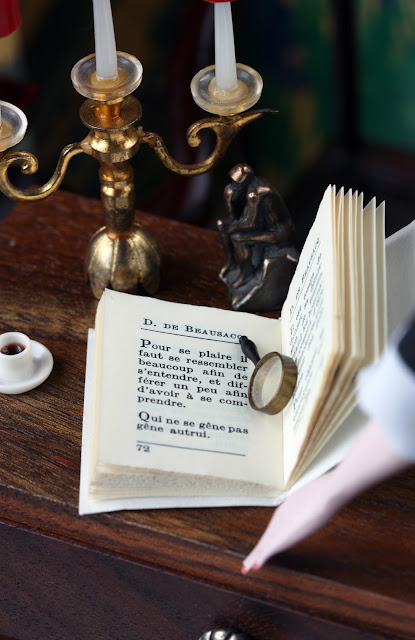 D. de Beausacq
Pour se plaire il
faut se ressembler
beaucoup afin de
s'entendre, et dif-
férer un peu afin
d'avoir à se com-
prendre.
Qui ne se gêne pas
gêne autrui.
72